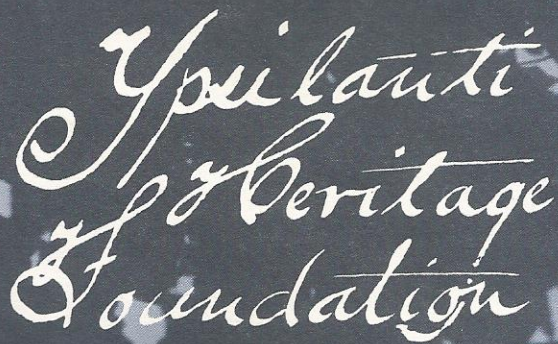 Ypsilanti
Heritage
Foundation